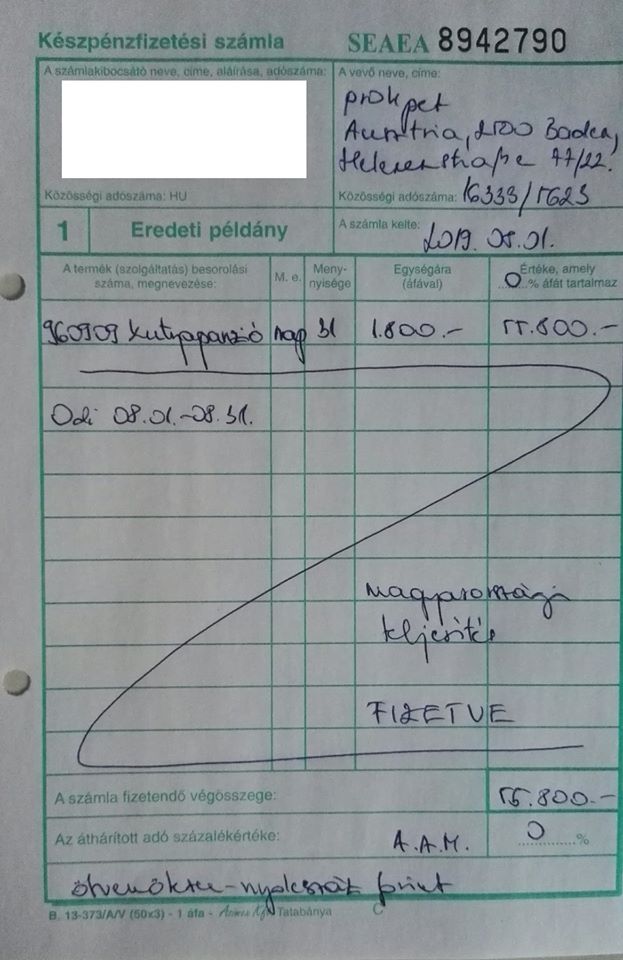 Készpénzfizetési számla SEAEA 8942790
A számlakibocsátó neve, címe, aláírása, adószáma:
Közösségi adószáma: HU
A vevő neve, címe:
prok pet
Austria, 2500 Baden,
Helenenstraße 77/22.
Közösségi adószáma: 16333/5623
1 Eredeti példány
A számla kelte: 2019. 08. 01.
A termék (szolgáltatás) besorolási száma, megnevezése: M. e. Meny-nyisége Egységára (áfával) Értéke, amely 0 % áfát tartalmaz
960909 Kutyapanzió nap 31 1.800.- 55.800.-
Odi 08.01.-08.31.
Magyarországi
teljesítés
FIZETVE
A számla fizetendő végösszege: 55.800.-
Az áthárított adó százalékértéke: A.A.M. 0 %
ötvenötezer-nyolcszáz forint
B. 13-373/A/V (50x3) - 1 áfa - Tatabánya C